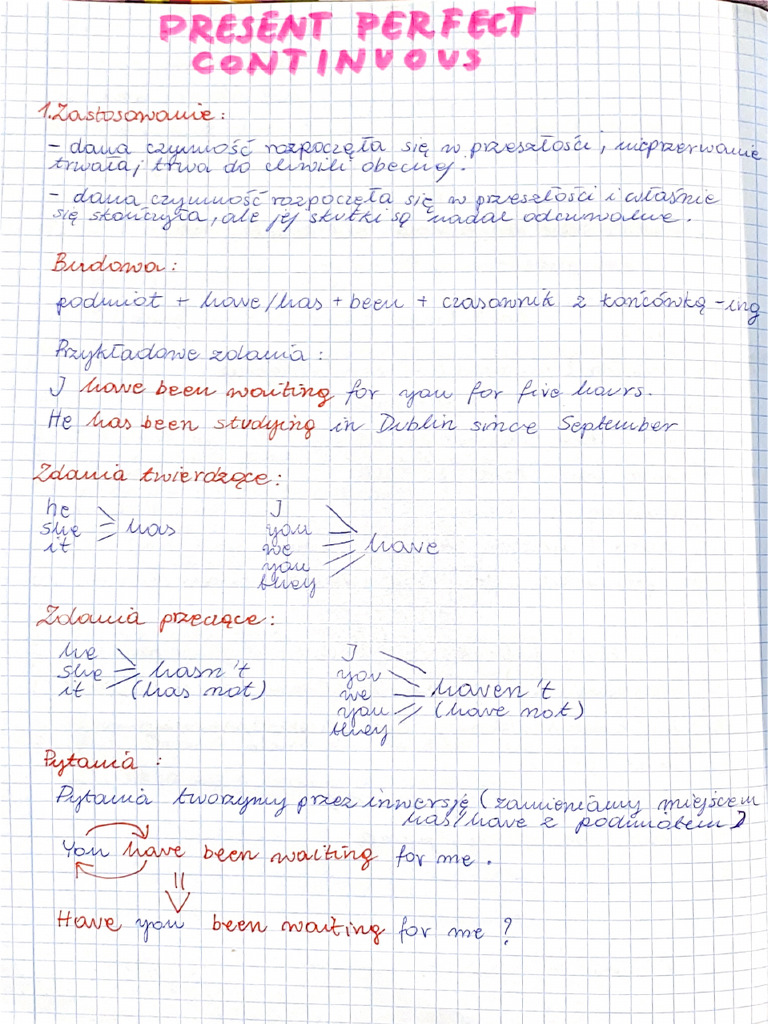 PRESENT PERFECT
CONTINUOUS
1. Zastosowanie:
- dana czynność rozpoczęła się w przeszłości, nieprzerwanie
trwała i trwa do chwili obecnej.
- dana czynność rozpoczęła się w przeszłości i właśnie
się skończyła, ale jej skutki są nadal odczuwalne.
Budowa:
podmiot + have/has + been + czasownik z końcówką -ing
Przykładowe zdania:
I have been waiting for you for five hours.
He has been studying in Dublin since September
Zdania twierdzące:
he
she has
it
I
you
we have
you
they
Zdania przeczące:
he
she hasn't
it (has not)
I
you
we haven't
you (have not)
they
Pytania:
Pytania tworzymy przez inwersję (zamieniamy miejscem
has/have z podmiotem)
You have been waiting for me.
Have you been waiting for me?